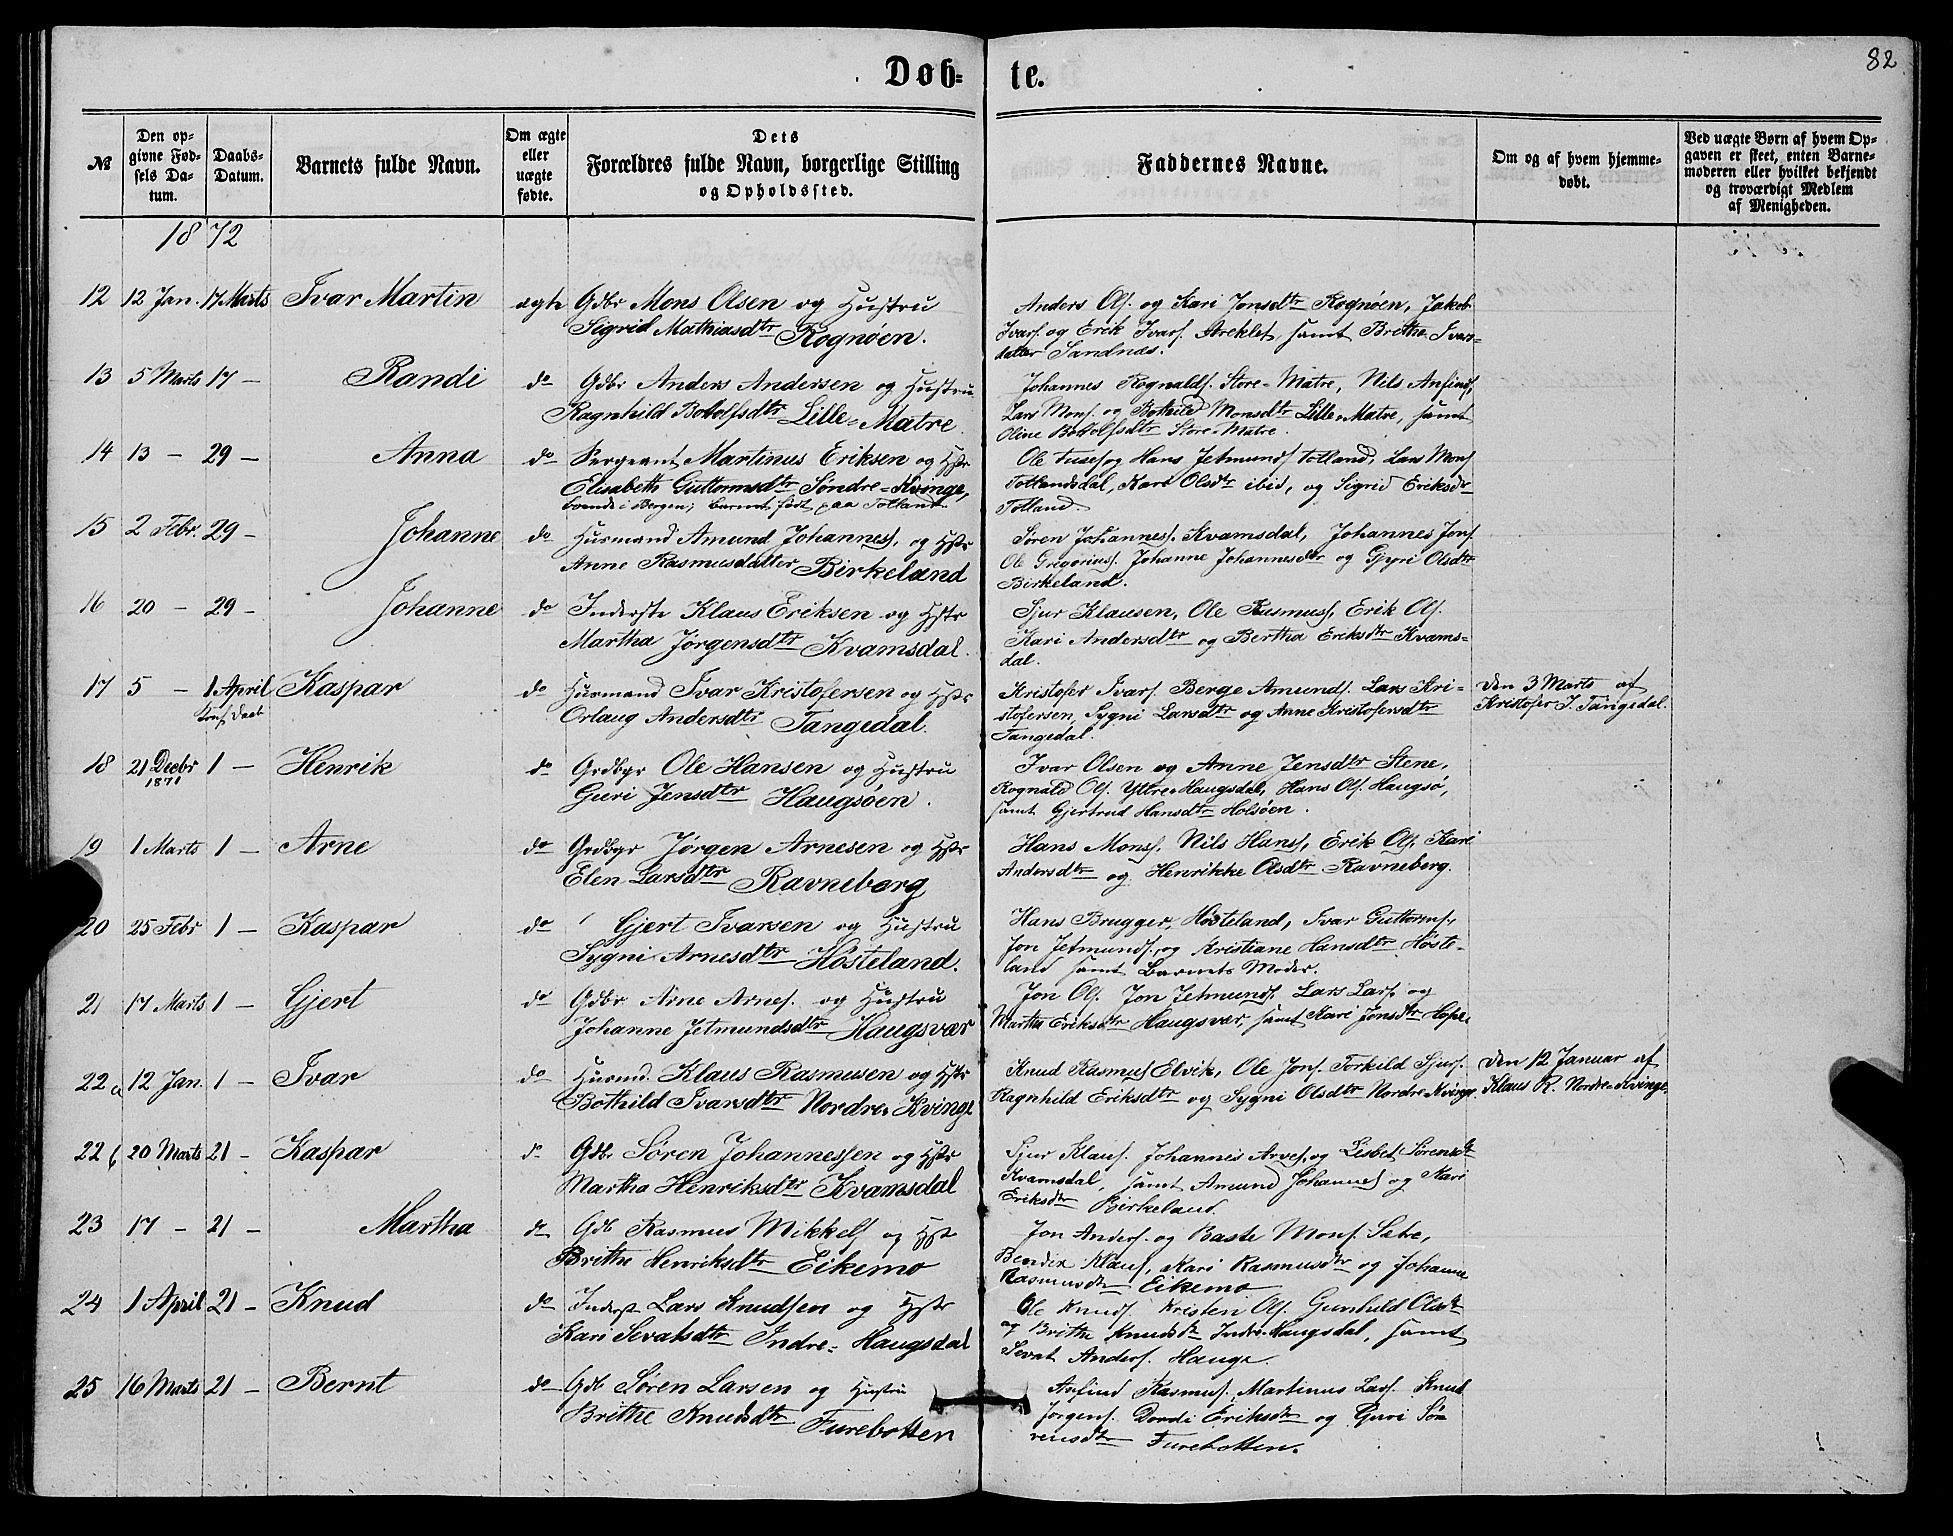 82
Døb- te.
№
Den op-
givne Fød-
sels Da-
tum.
Daabs-
Datum.
Barnets fulde Navn.
Om ægte
eller
uægte
fødte.
Dets
Forældres fulde Navn, borgerlige Stilling
og Opholdssted.
Faddernes Navne.
Om og af hvem hjemme-
døbt.
Ved uægte Børn af hvem Op-
gaven er skeet, enten Barne-
moderen eller hvilket bekjendt
og troværdigt Medlem
af Menigheden.
1872
12 12 Jan. 17 Marts Ivar Martin ægte Gdbr Mons Olsen og Hustru
Sigrid Mathiasdtr Rognøen.
Anders Ols. og Kari Jonsdtr Rognøen, Jakob
Ivars. og Erik Ivars. Areklet samt Brithe Ivars-
datter Sandnæs.
13 5 Marts 17 - Randi do Gdbr Anders Andersen og Hustru
Ragnhild Botolfsdtr Lille-Matre
Johannes Rognalds. Store-Matre, Nils Anfinds.
Lars Mons. og Bothild Monsdtr Lille-Matre, samt
Oline Botolfsdtr Store-Matre.
14 13 - 29 - Anna do Sergeant Martinus Eriksen og Hstr
Elisabeth Guttormsdtr Søndre-Kvinge,
boende i Bergen; barnet født paa Totland.
Ole Tuses. og Hans Jetmunds. Totland, Lars Mons.
Totlandsdal, Kari Olsdtr ibid, og Sigrid Eriksdtr
Totland.
15 2 Febr. 29 - Johanne do Husmand Amund Johanness. og Hstr
Anne Rasmusdatter Birkeland
Søren Johannes. Kvamsdal, Johannes Jons.
Ole Gregorius. Johanne Johannesdtr og Gyri Olsdtr
Birkeland.
16 20 - 29 - Johanne do Inderste Klaus Eriksen og Hstr
Martha Jørgensdtr Kvamsdal.
Sjur Klausen, Ole Rasmus. Erik Ols.
Kari Andersdtr og Bertha Eriksdtr Kvams-
dal.
17 5 - 1 April Kaspar do Husmand Ivar Kristofersen og Hstr
Orlaug Andersdtr Tangedal.
Kristofer Ivars. Berge Amunds. Lars Kri-
stofersen, Sygni Larsdtr og Anne Kristofersdtr
Tangedal.
Den 3 Marts af
Kristofer I. Tangedal.
18 21 Decbr 1871 1 - Henrik do Grdbgr Ole Hansen og Hustru
Guri Jensdtr Haugsøen.
Ivar Olsen og Anne Jensdtr Stene,
Rognald Ols. Yttre-Haugsdal, Hans Ols. Haugsø,
samt Gjertrud Hansdtr Holsøen.
19 1 Marts 1 - Arne do Grdbgr Jørgen Arnesen og Hstr
Elen Larsdtr Ravneberg
Hans Mons. Nils Hans. Erik Ols. Kari
Andersdtr og Henrikke Olsdtr Ravneberg.
20 25 Febr 1 - Kaspar do Gjert Ivarsen og Hustru
Sygni Arnesdtr Hösteland.
Hans Brugger, Hösteland, Ivar Guttorms.
Jon Jetmunds. og Kristiane Hansdtr Höste-
land samt Barnets Moder.
21 17 Marts 1 - Gjert do Gdbr Arne Arnes. og Hustru
Johanne Jetmundsdtr Haugsvær
Jon Ols. Jon Jetmunds. Lars Lars. og
Martha Eriksdtr Haugsvær, samt Kari Jonsdtr Hope.
22 a 12 Jan. 1 - Ivar do Husmd. Klaus Rasmusen og Hstr
Bothild Ivarsdtr Nordre-Kvinge
Knud Rasmus. Elvik, Ole Jons. Torkild Sjurs.
Ragnhild Eriksdtr og Sygni Olsdtr Nordre Kvinge.
Den 12 Januar af
Klaus R. Nordre-Kvinge.
22 b 20 Marts 21 - Kaspar do Gdb. Søren Johannessen og Hstr
Martha Henriksdtr Kvamsdal
Sjur Klaus. Johannes Arves. og Lisbet Sørensdtr
Kvamsdal, samt Amund Johannes. og Kari
Eriksdtr Birkeland.
23 17 - 21 - Martha do Gdb Rasmus Mikkels. og Hstr
Brithe Henriksdtr Eikemo
Jon Anders. og Baste Mons. Sætre,
Bendix Klaus. Kari Rasmusdtr og Johanne
Rasmusdtr Eikemo
24 1 April 21 - Knud do Inderst Lars Knudsen og Hstr
Kari Sevatsdtr Indre-Haugsdal
Ole Knuds. Kristen Ols. Gunhild Olsdtr
og Brithe Knudsdtr Indre-Haugsdal, samt
Sevat Anders. Hauge.
25 16 Marts 21 - Bernt do Gdb Søren Larsen og Hustru
Brithe Knudsdtr Furebotten
Anfind Rasmus. Martinus Lars. Knud
Jørgens. Dordi Eriksdtr og Guri Sø-
rensdtr Furebotten.